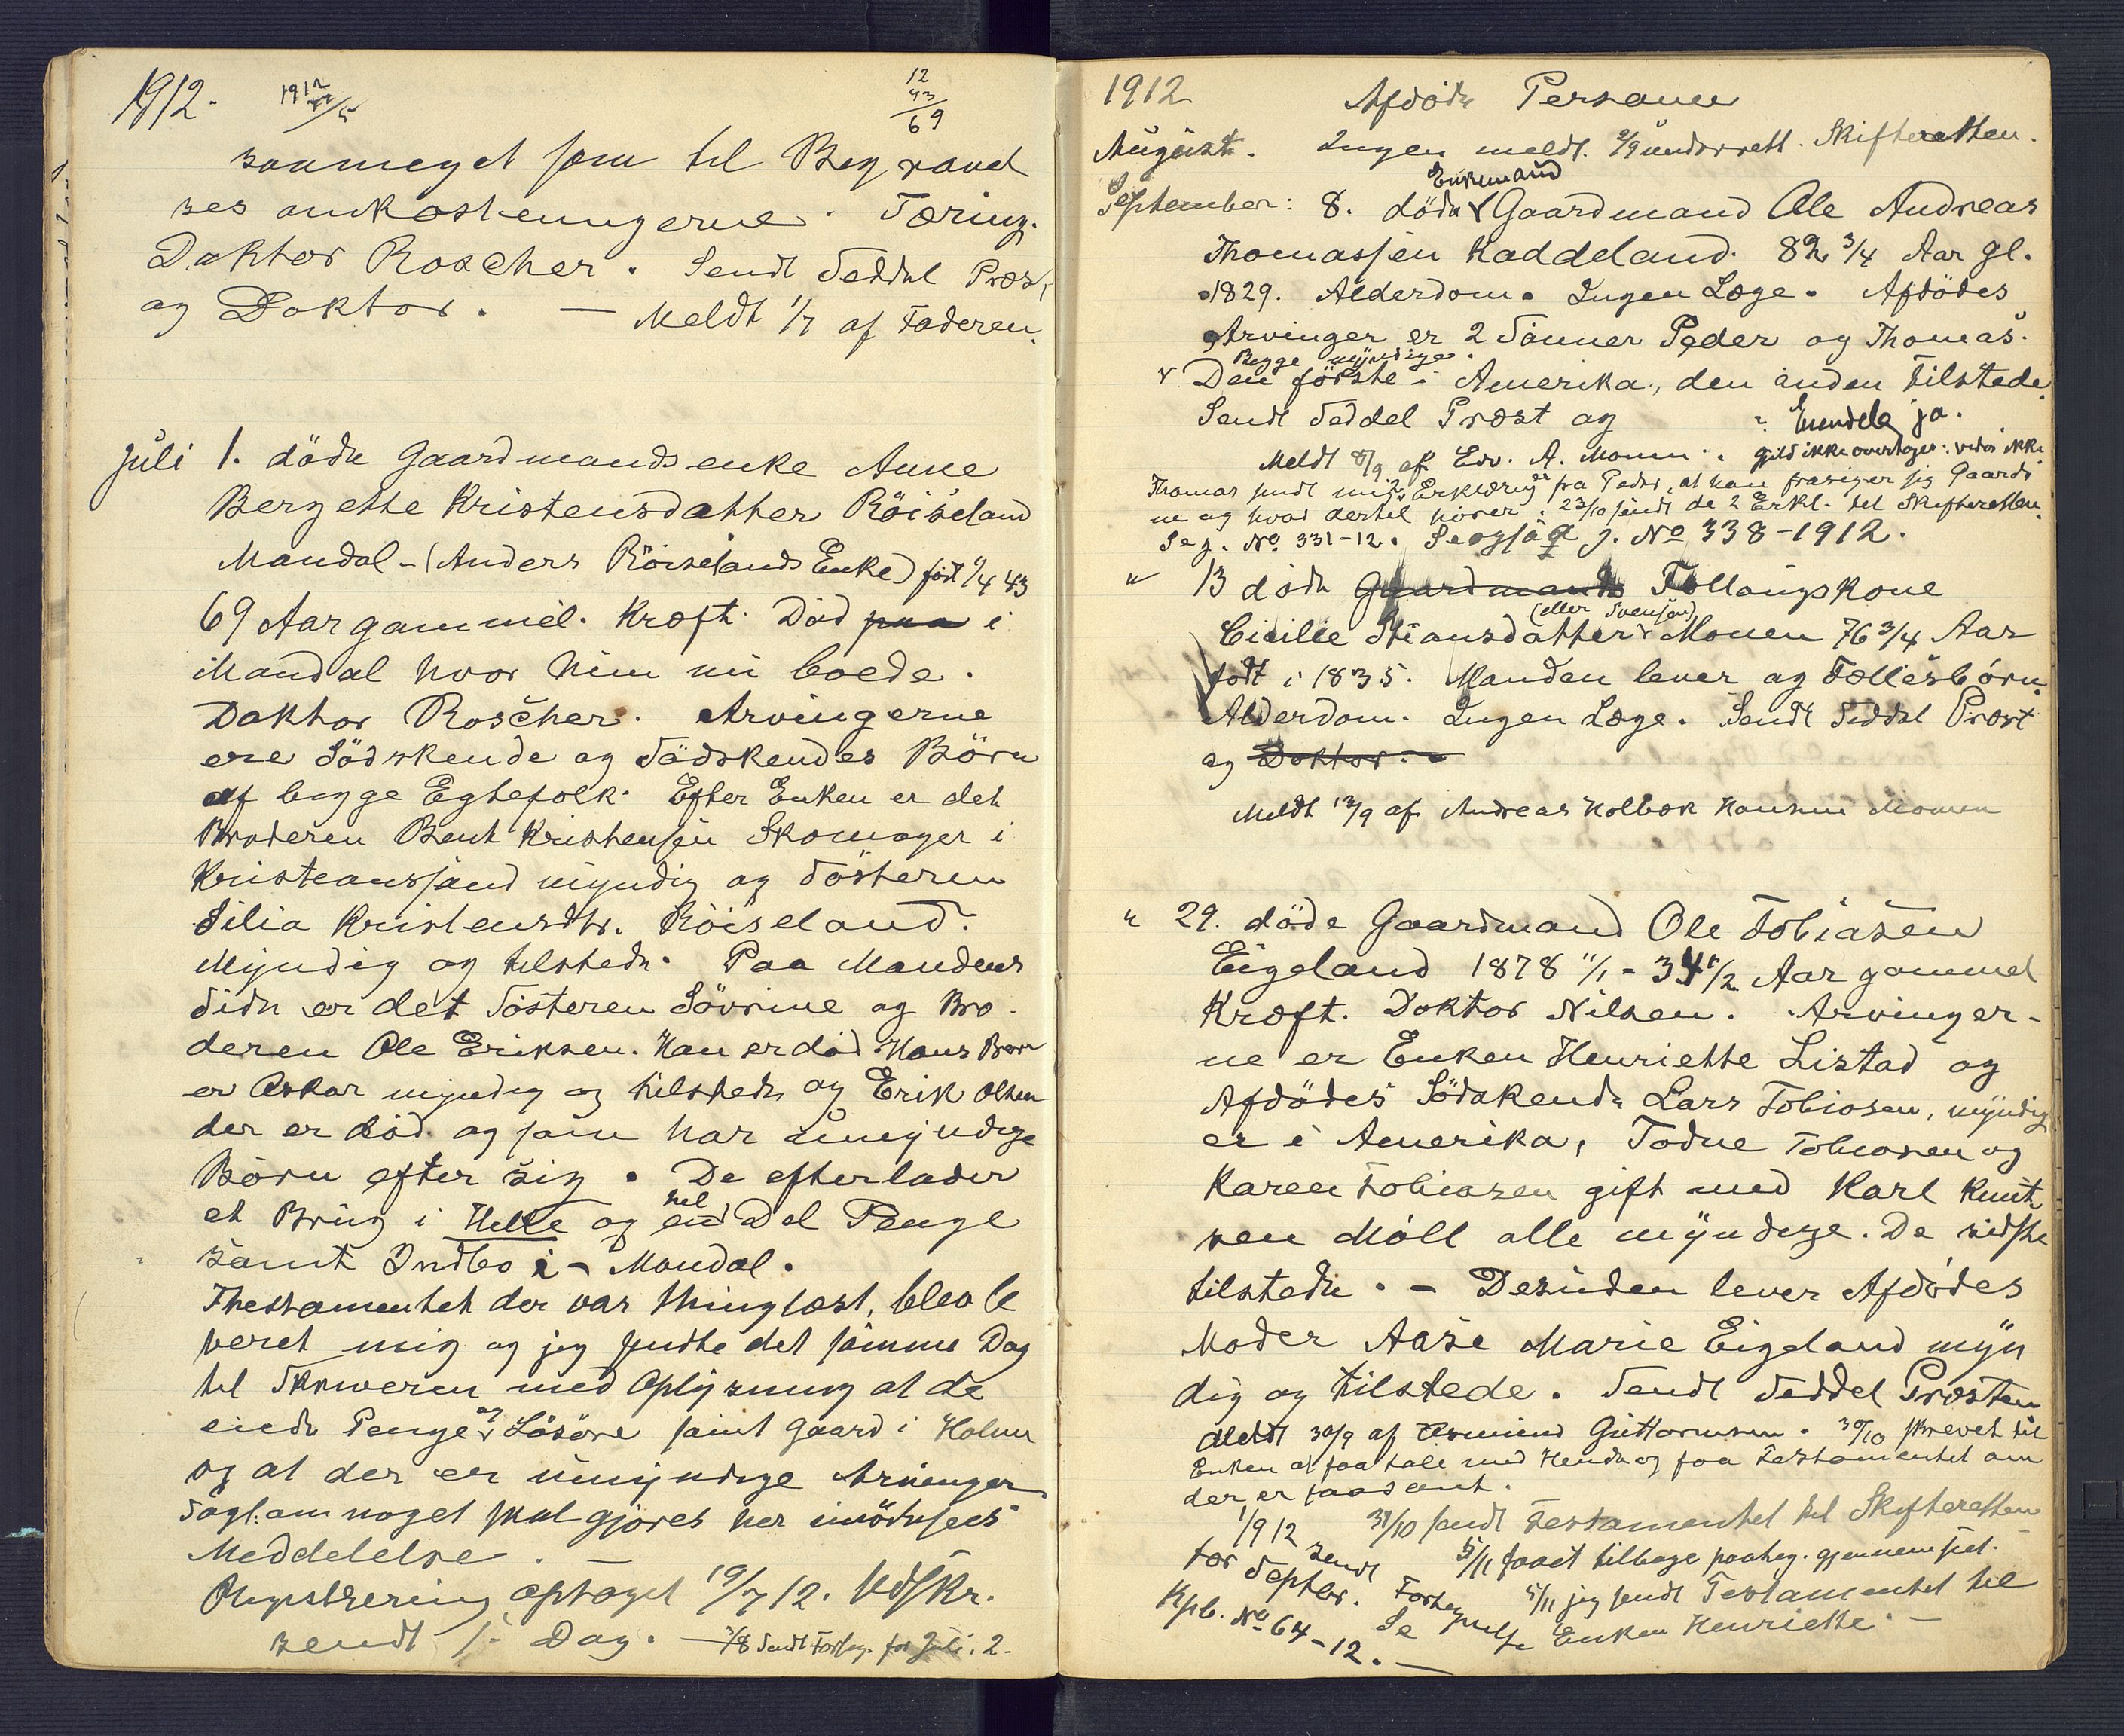 1912.
12
43
69
saameget som til Begravel
ses omkostningerne. Tæring.
Doktor Roscher. Sendt Seddel Præst
og Doktor. — Meldt 1/7 af Faderen.
Juli 1. döde Gaardmandsenke Anne
Bergette Kristensdatter Röiseland
Mandal - (Anders Röiselands Enke) födt 1/4 43
69 Aar gammel. Kræft. Död paa i
Mandal hvor hun nu boede.
Doktor Roscher. Arvingerne
ere Södskende og Södskendes Börn
af begge Egtefolk. Efter Enken er det
Broderen Bent Kristensen Skomager i
Kristianssand myndig og Sösteren
Silia Kristensdtr. Röiseland.
Myndig og tilstede. Paa Mandens
Side er det Sösteren Sövrine og Bro-
deren Ole Eriksen. Han er död. Hans Børn
er Oskar myndig og tilstede og Erik Olsen
der er död og som har umyndige
Börn efter sig. De efterlader
et Brug i Helle og en hel Del Penge
samt Indbo i - Mandal.
Thestamentet der var thinglæst, blev le
veret mig og jeg sendte det samme Dag
til Skriveren med Oplysning at de
eiede Penge og Lösöre samt Gaard i Holum
og at der er umyndige Arvinger
Sagt: om noget skal gjöres her imödesees
Meddelelse. —
Registrering optaget 19/7 12. Udskr.
sendt s. Dag. — 2/8 Sendt Forteg. for Juli. 2.
1912 Afdöde Personer
August. Ingen meldt. 2/9 underrett. Skifteretten.
September: 8. döde Enkemand Gaardmand Ole Andreas
Thomassen Haddeland. 82 3/4 Aar gl.
1829. Alderdom. Ingen Læge. Afdödes
Arvinger er 2 Sönner Peder og Thomas.
Begge myndige.
Den förste i Amerika, den anden tilstede.
Sendt Seddel Præst og Eiendele ja.
Meldt 8/9 af Edv. A. Monen. Gjeld ikke overtages: vides ikke
Thomas sendt mig 2 Erklæringer fra Peder, at han frasiger sig Gaarde
ne og hvad dertil hörer. 23/10 sendt de 2 Erkl. til Skifteretten.
Se j. No 331-12. Se ogsaa j. No 338-1912.
" 13 döde Gaardmands Follaugskone
Cicilie Stiansdatter (eller Svensen) Monen 76 3/4 Aar
födt i 1835. Manden lever og Fællesbörn.
Alderdom. Ingen Læge. Sendt Seddel Præst
og Doktor. -
Meldt 13/9 af Andreas Holbæk Hansen Monen
" 29. döde Gaardmand Ole Tobiasen
Eigeland 1878 11/1 - 34 1/2 Aar gammel
Kræft. Doktor Nilsen. Arvinger-
ne er Enken Henriette Listad og
Afdödes Södskende Lars Tobiasen, myndig
er i Amerika, Todne Tobiasen og
Karen Tobiasen gift med Karl Knut-
sen Möll alle myndige. De sidste
tilstede. - Desuden lever Afdödes
Moder Aase Marie Eigeland myn
dig og tilstede. Sendt Seddel Præsten
Meldt 30/9 af Guttormsen. 30/10 skrevet til
Enken at faa tale med Hende og faa Testamentet om
der er saadant.
1/9 12 sendt 31/10 sendt Testamentet til Skifteretten
for Septbr. Fortegnelse 5/11 faaet tilbage paateg. gjennemset.
5/11 jeg sendt Testamentet til
Se Enken Henriette. —
Kpb. No 64-12. —